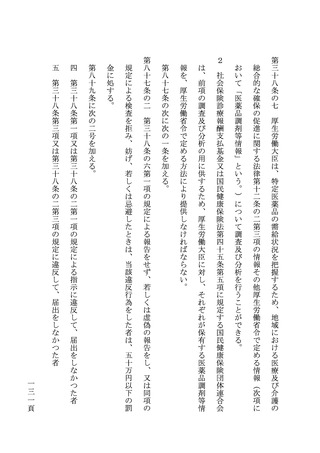 第三十八条の七　厚生労働大臣は、特定医薬品の需給状況を把握するため、地域における医療及び介護の
総合的な確保の促進に関する法律第十二条の二第三項の情報その他厚生労働省令で定める情報（次項に
おいて「医薬品調剤等情報」という。）について調査及び分析を行うことができる。
２　社会保険診療報酬支払基金又は国民健康保険法第四十五条第五項に規定する国民健康保険団体連合会
は、前項の調査及び分析の用に供するため、厚生労働大臣に対し、それぞれが保有する医薬品調剤等情
報を、厚生労働省令で定める方法により提供しなければならない。
第八十七条の次に次の一条を加える。
第八十七条の二　第三十八条の六第一項の規定による報告をせず、若しくは虚偽の報告をし、又は同項の
規定による検査を拒み、妨げ、若しくは忌避したときは、当該違反行為をした者は、五十万円以下の罰
金に処する。
第八十九条に次の二号を加える。
四　第三十八条第一項又は第三十八条の二第一項の規定による指示に違反して、届出をしなかつた者
五　第三十八条第三項又は第三十八条の二第三項の規定に違反して、届出をしなかつた者
一三一頁